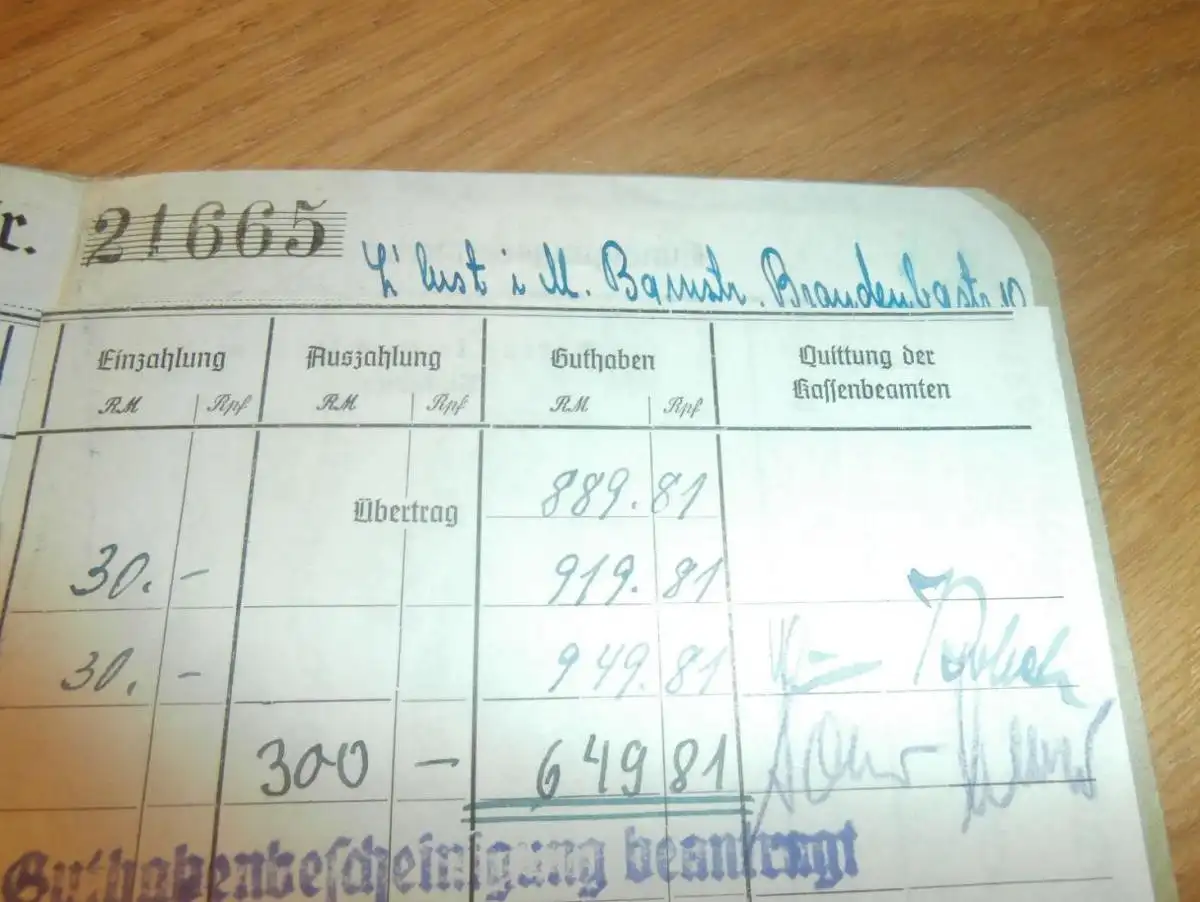 r. 21665
L'lust i. M. Bamstr. Brandenbgstr. 10
Einzahlung Auszahlung Guthaben Quittung der
Kassenbeamten
RM Rpf RM Rpf RM Rpf
Übertrag 889.81
30. - 919.81
30. - 949.81
300 - 649 81
Guthabenbescheinigung beantragt